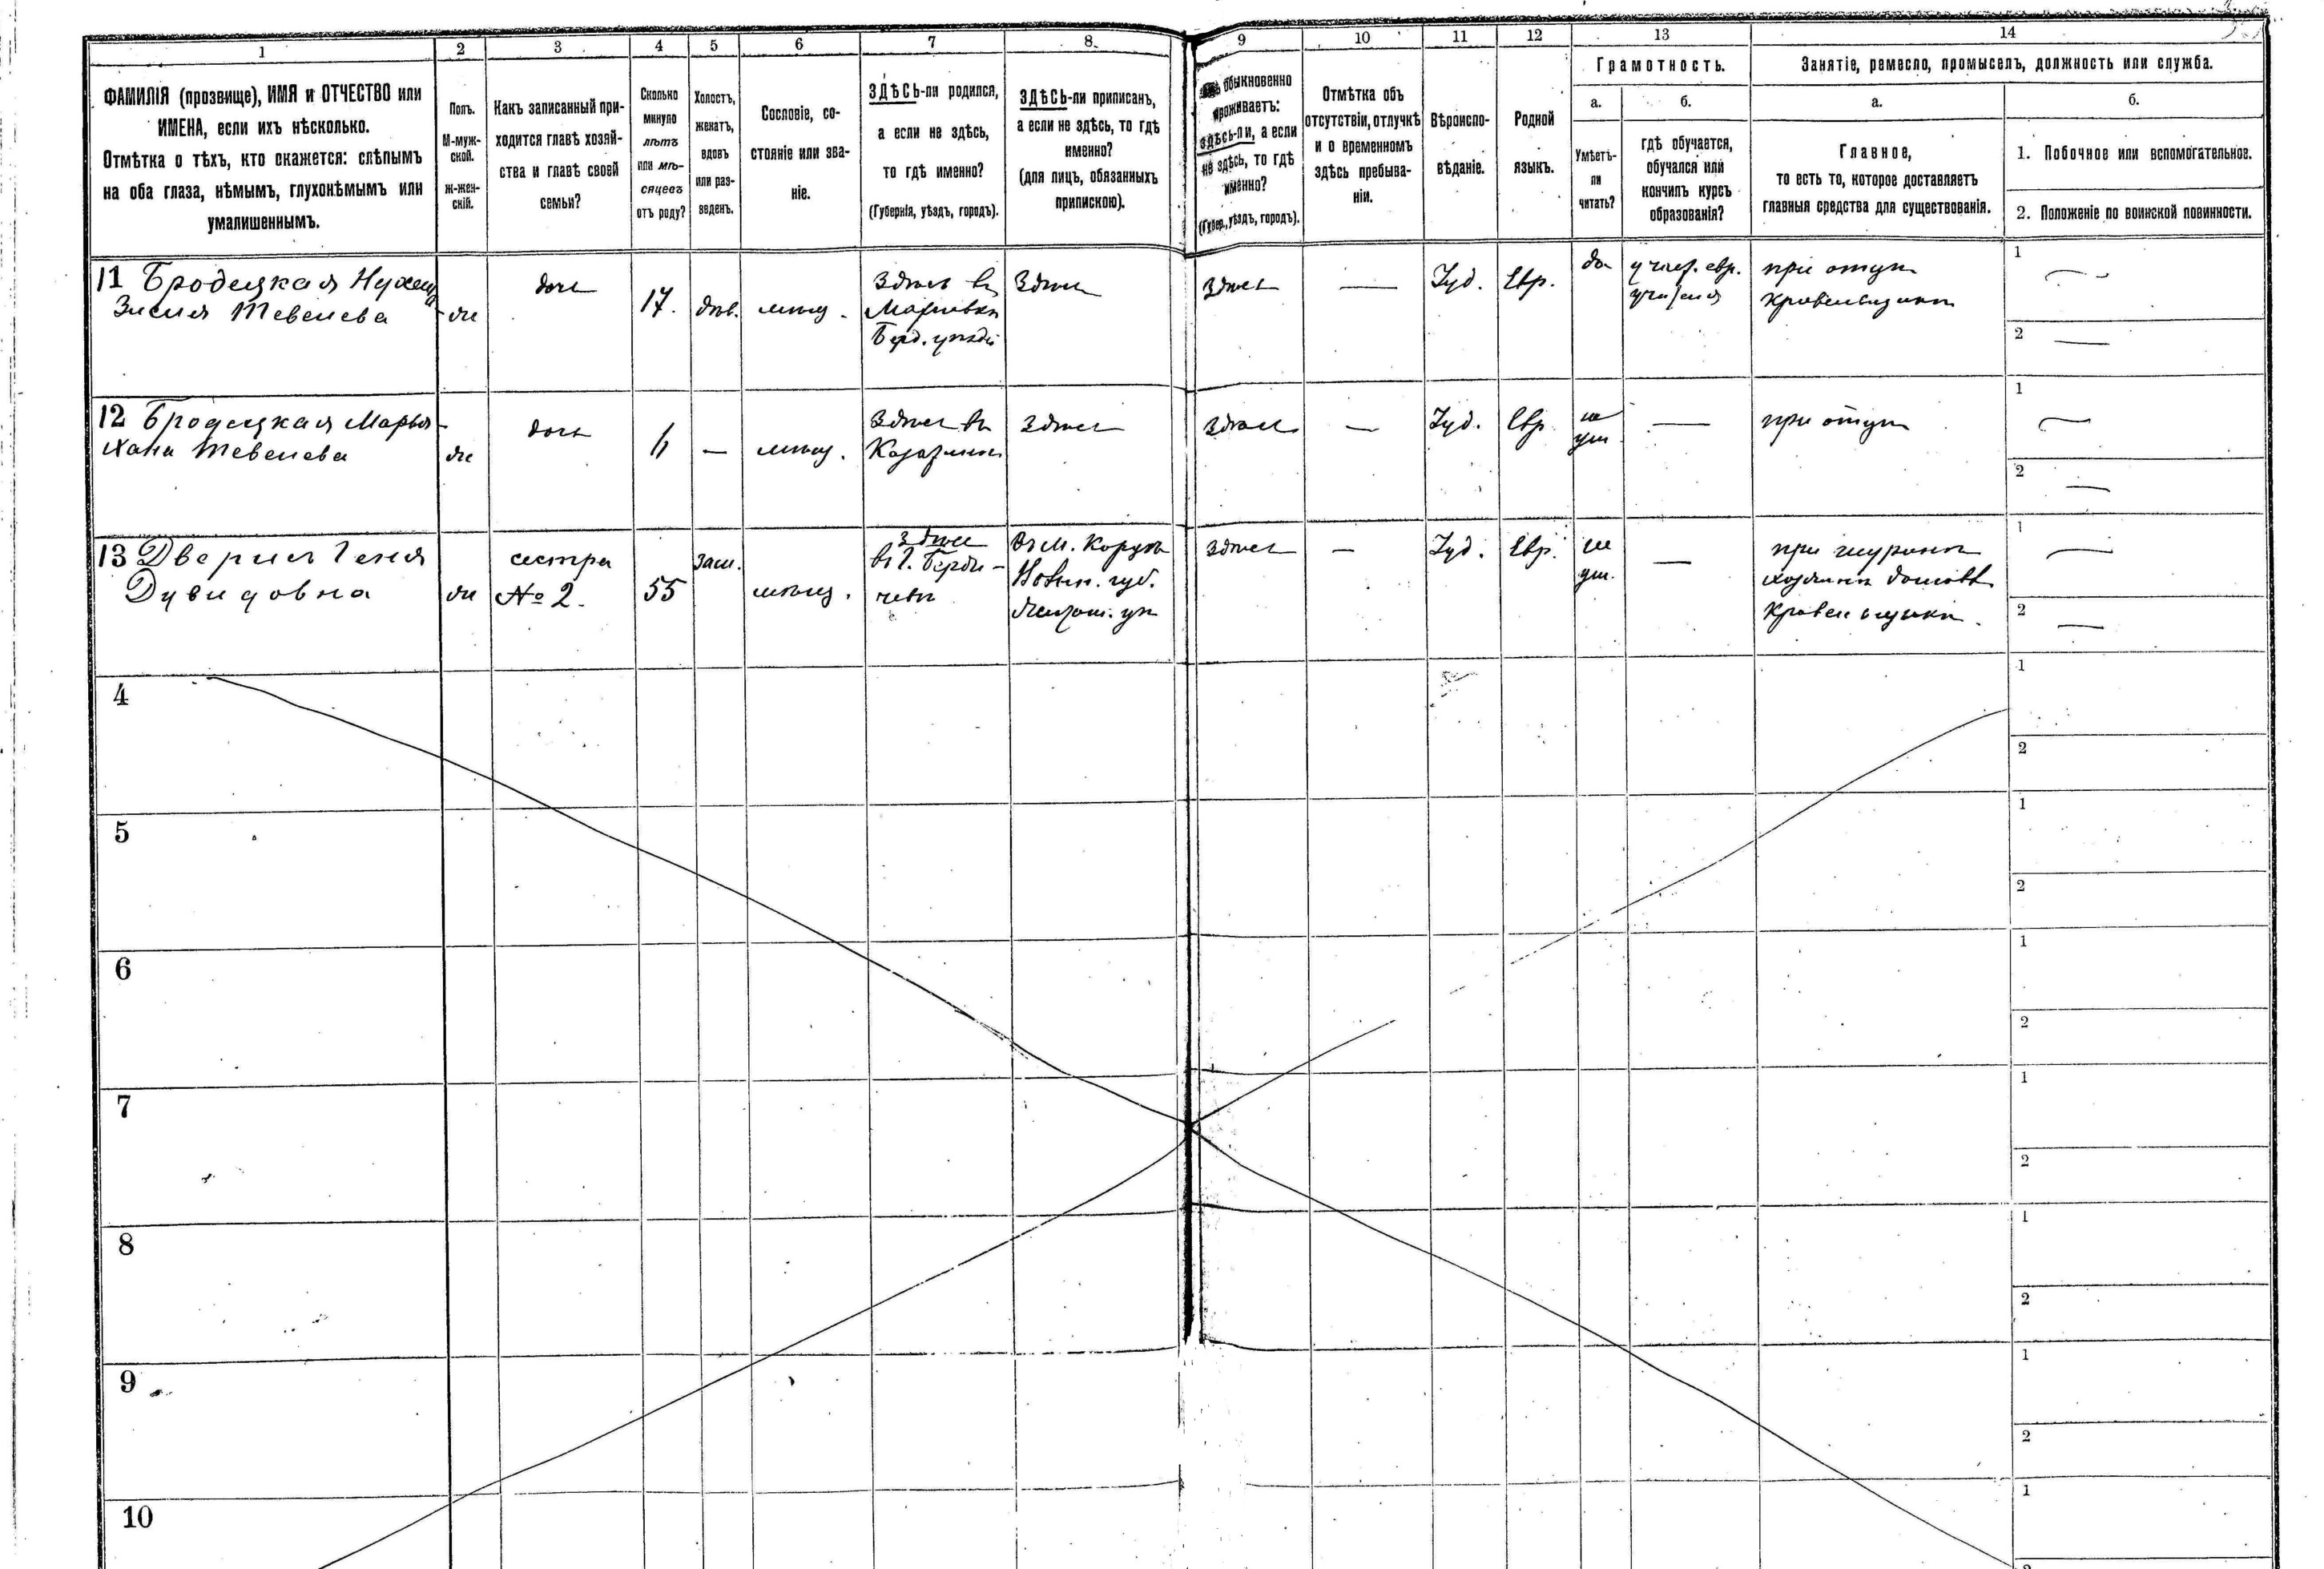 1 2 3 4 5 6 7 8 9 10 11 12 13 14
ФАМИЛІЯ (прозвище), ИМЯ и ОТЧЕСТВО или
ИМЕНА, если ихъ нѣсколько.
Отмѣтка о тѣхъ, кто окажется: слѣпымъ
на оба глаза, нѣмымъ, глухонѣмымъ или
умалишеннымъ.
Полъ.
М-муж-
ской.
ж-жен-
скій.
Какъ записанный при-
ходится главѣ хозяй-
ства и главѣ своей
семьи?
Сколько
минуло
лѣтъ
или мѣ-
сяцевъ
отъ роду?
Холостъ,
женатъ,
вдовъ
или раз-
веденъ.
Сословіе, со-
стояніе или зва-
ніе.
ЗДѢСЬ-ли родился,
а если не здѣсь,
то гдѣ именно?
(Губернія, уѣздъ, городъ).
ЗДѢСЬ-ли приписанъ,
а если не здѣсь, то гдѣ
именно?
(для лицъ, обязанныхъ
припискою).
обыкновенно
проживаетъ:
здѣсь-ли, а если
не здѣсь, то гдѣ
именно?
(Губер., уѣздъ, городъ).
Отмѣтка объ
отсутствіи, отлучкѣ
и о временномъ
здѣсь пребыва-
ніи.
Вѣроиспо-
вѣданіе.
Родной
языкъ.
Грамотность.
а.
Умѣетъ-
ли
читать?
б.
гдѣ обучается,
обучался или
кончилъ курсъ
образованія?
Занятіе, ремесло, промыселъ, должность или служба.
а.
Главное,
то есть то, которое доставляетъ
главныя средства для существованія.
б.
1. Побочное или вспомогательное.
2. Положеніе по воинской повинности.
11 Бродецкая
Тевелева
ж
дочь
17.
дѣв.
мѣщ.
Здѣсь въ
Берд. уѣзда
Здѣсь
Здѣсь
Іуд.
Евр.
да
у част. евр.
учителя
при отцѣ
1
2
12 Бродецкая Марья
Хана Тевелева
ж
дочь
—
мѣщ.
Здѣсь въ
Здѣсь
Здѣсь
—
Іуд.
Евр.
не
ум.
—
при отцѣ
1
2
13 Геня
Дувидовна
ж
сестра
№ 2.
55
зам.
мѣщ.
здѣсь
въ г. Берди-
чевѣ
Въ м.
Волын. губ.
Здѣсь
—
Іуд.
Евр.
не
ум.
—
при
1
2
4
1
2
5
1
2
6
1
2
7
1
2
8
1
2
9
1
2
10
1